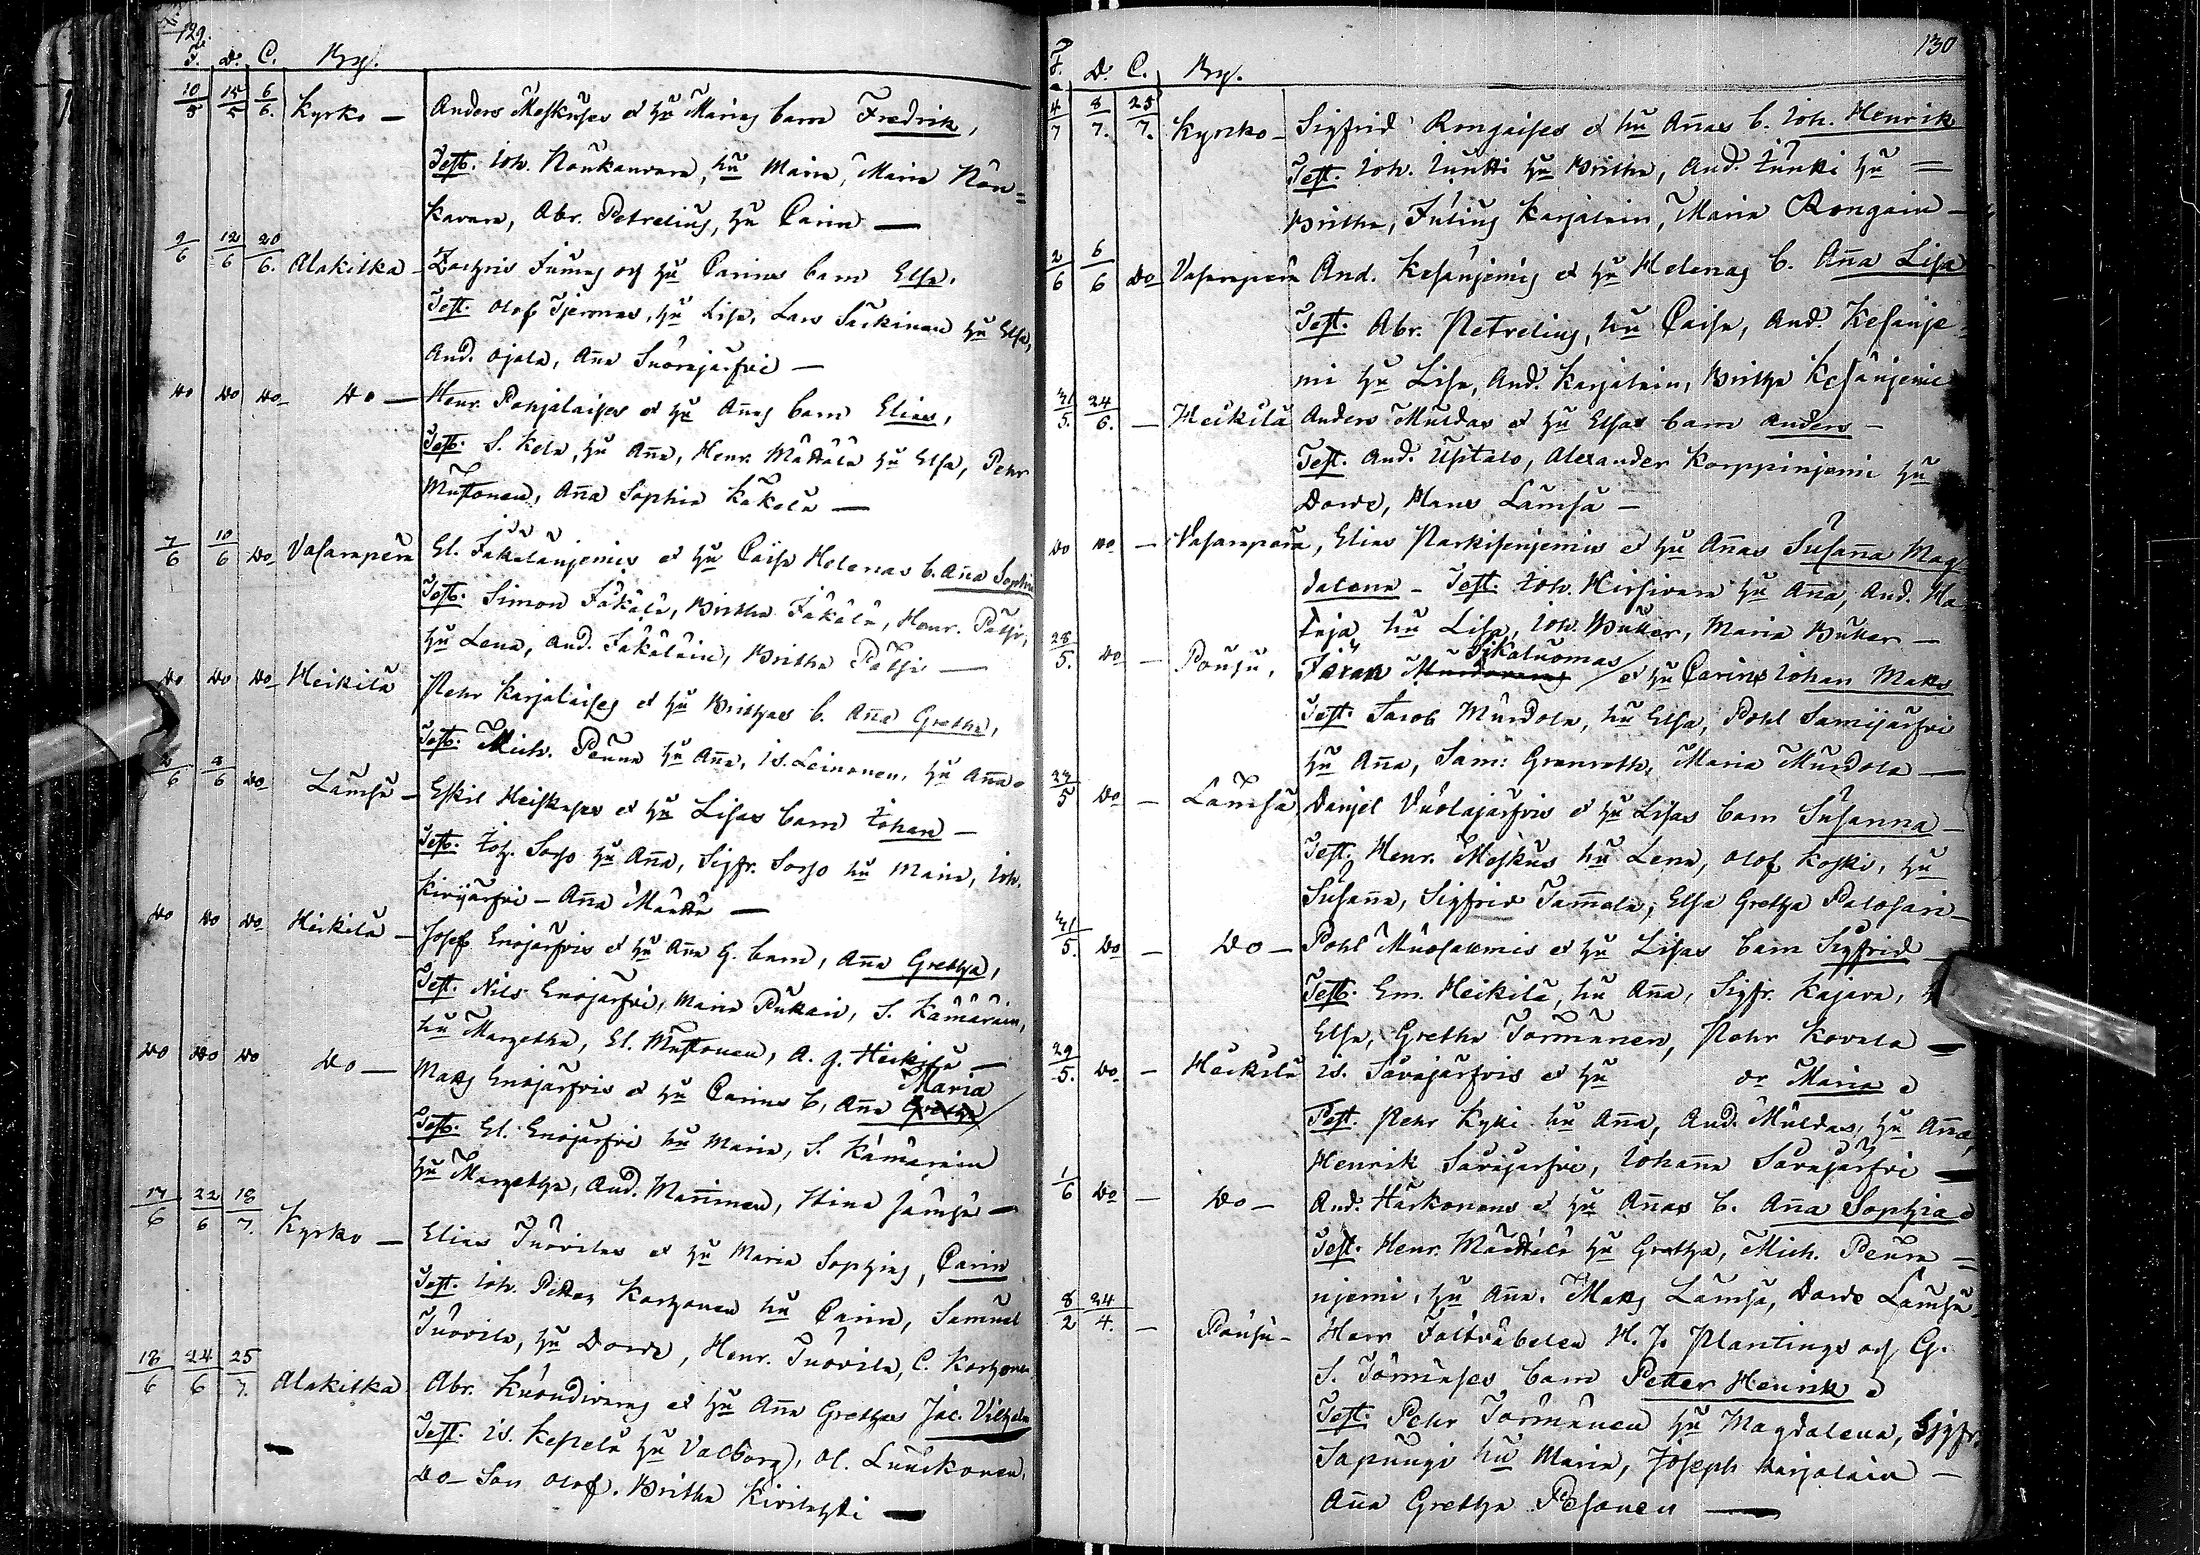 129.
F. D. C. By.
10/5 15/5 6/6. Kyrko — Anders Meskuses et hu Marias barn Fredrik,
Test. Joh. Noukavara, hu Maria, Maria Nou=
kavara, Abr. Petrelius, hu Carin —
9/6 12/6 20/6. Alakitka — Zachris et hu Carins barn Elsa,
Test. Olof hu Lisa, Lars Särkinen hu Elsa,
And. Ojala, Aña Suorajärfvi —
do do do do — Henr. Pohjalaises et hu Añas barn Elias,
Test. S. Kela, hu Aña, Henr. Määttälä hu Elsa, Pehr
Mustonen, Aña Sophia
7/6 10/6 do Vasarapera El. Jäkäläniemis et hu Caisa Helenas b. Aña Sophia
Test. Simon Jäkälä, Britha Jäkälä, Henr. Pätsi,
hu Lena, And. Jäkäläin, Britha Pätsi —
do do do Heikilä Pehr Karjalaises et hu Brithas b. Aña Gretha,
Test. Mich. Peura hu Aña, Is. Leinonen, hu Aña
2/6 8/6 do Lämsä — Eskil Heiskases et hu Lisas barn Johan —
Test. Joh. Sorso hu Aña, Sigfr. Sorso hu Maria, Joh.
Kirijärfvi — Aña Määttä —
do do do Heikilä — Josef Enojärfvis et hu Aña G. barn, Aña Gretha,
Test. Nils Enojärfvi, Maria Pukari, S. Kämäräin,
hu Margetha, El. Mustonen, A. G. Heikilä —
do do do do — Mats Enojärfvis et hu Carins b, Aña Gretha Maria
Test. El. Enojärfvi hu Maria, S. Kämäräin
hu Margetha, And. Manninen, Stina Jämsä —
17/6 22/6 18/7. Kyrko — Elias Tuovilas et hu Maria Sophias, Carin
Test. Joh. Petter Korhonen hu Carin, Samuel
Tuovila, hu Dorde, Henr. Tuovila, C. Korhonen
18/6 24/6 25/7. Alakitka Abr. Kuondivaras et hu Aña Grethas Jac. Vilhelm
Test. Is. Keselä hu Valborg, Ol. Luuckonen,
do Son Olof, Britha Kivilahti —
130
F. D. C. By.
4/7 8/7. 25/7. Kyrko — Sigfrid Rongaises et hu Añas b. Joh. Henrik
Test. Joh. Juntti hu Britha, And. Junki hu =
Britha, Julius Karjalain, Maria Rongain —
2/6 6/6 do Vasarapera And. Kesäniemis et hu Helenas b. Aña Lisa
Test. Abr. Petrelius, hu Caisa, And. Kesänie
mi hu Lisa, And. Karjalain, Britha Kesäniemi
31/5. 24/6. — Heikilä Anders Muldas et hu Elsas barn Anders —
Test. And. Ustalo, Alexander Korppinjemi hu
Dorde, Hans Lämsä —
do do — Vasarapera, Elias Parkisenjemis et hu Añas Susaña Mag
dalena — Test. Joh. Hirsivara hu Aña, And. Ha
taja hu Lisa, Joh. Butter, Maria Butter —
28/5. do — Pousu, Sikaluomas et hu Carins Johan Mats
Test. Jacob Murdola, hu Elsa, Pohl Samijärfvi
hu Aña, Sam: Granroth, Maria Murdola —
23/5 do — Lämsä, Daniel Vuolajärfvis et hu Lisas barn Susanna —
Test. Henr. Meskus hu Lena, Olof Koski, hu
Susaña, Sigfrid Tamela, Elsa Gretha Palosari —
31/5. do — do — Pohl Muosalmis et hu Lisas barn Sigfrid —
Test. Em. Heikilä, hu Aña, Sigfr. Kajava,
Elsa, Gretha Tormänen, Pehr Kovala —
29/5. do — Heikilä Is. Säräjärfvis et hu dr Maria
Test. Pehr Kyki hu Aña, And. Muldas, hu Aña,
Henrik Säräjärfvi, Johaña Säräjärfvi —
1/6 do — do — And. Härkönens et hu Añas b. Aña Sophia
Test. Henr. Määttälä hu Gretha, Mich. Peura =
njemi, hu Aña. Mats Lämsä, Dorde Lämsä
8/2 24/4. — Pousu — Herr Fältväbelen H. J. Plantings och G.
S. Törmäses barn Petter Henrik
Test. Pehr Törmänen hu Magdalena, Sigfr.
Sapungi hu Maria, Joseph Karjalain —
Aña Gretha Pesonen —